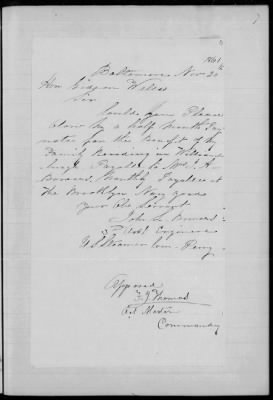 1861
Baltimore Nov 20
Hon Gideon Welles
Sir
Could you Please
alow me a half Month Pay
notes for the benefit of my
Family Residing in Williams
Payable to Mrs J. A.
Bowers Monthly Payable at
the Brooklyn Navy yard
your Obe Servent
John S Bowers
Asst Engineer
U S Steamer Com. Perry
Approved
F. J. Thomas
Act Master
Commanding